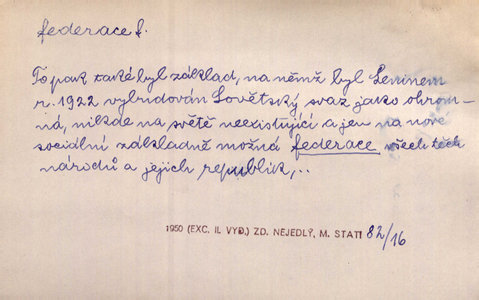 federace f.
To pak také byl základ, na němž byl Leninem
r. 1922 vybudován Sovětský svaz jako ohrom-
ná, nikde na světě neexistující a jen na nové
sociální základně možná federace všech těch
národů a jejich republik, ..
1950 (EXC. II. VYD.) ZD. NEJEDLÝ, M. STATI 82/16